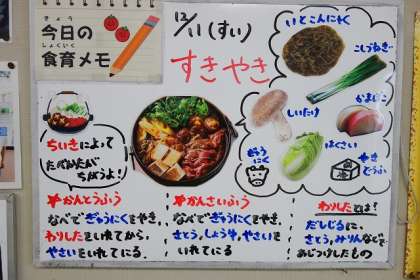 きょう
今日の
しょくいく
食育メモ
12/11(すい)
すきやき
いとこんにゃく
こしつねぎ
かまぼこ
しいたけ
はくさい
ぎゅうにく
やきどうふ
ちいきによって
たべかたが
ちがうよ!
かんとうふう
なべでぎゅうにくをやき、
わりしたをいれてから、
やさいをいれてにる。
かんさいふう
なべでぎゅうにくをやき、
さとう、しょう牛、やさいを
いれてにる
わりしたとは!
だしじるに、
さとう、みりんなどで
あじつけしたもの